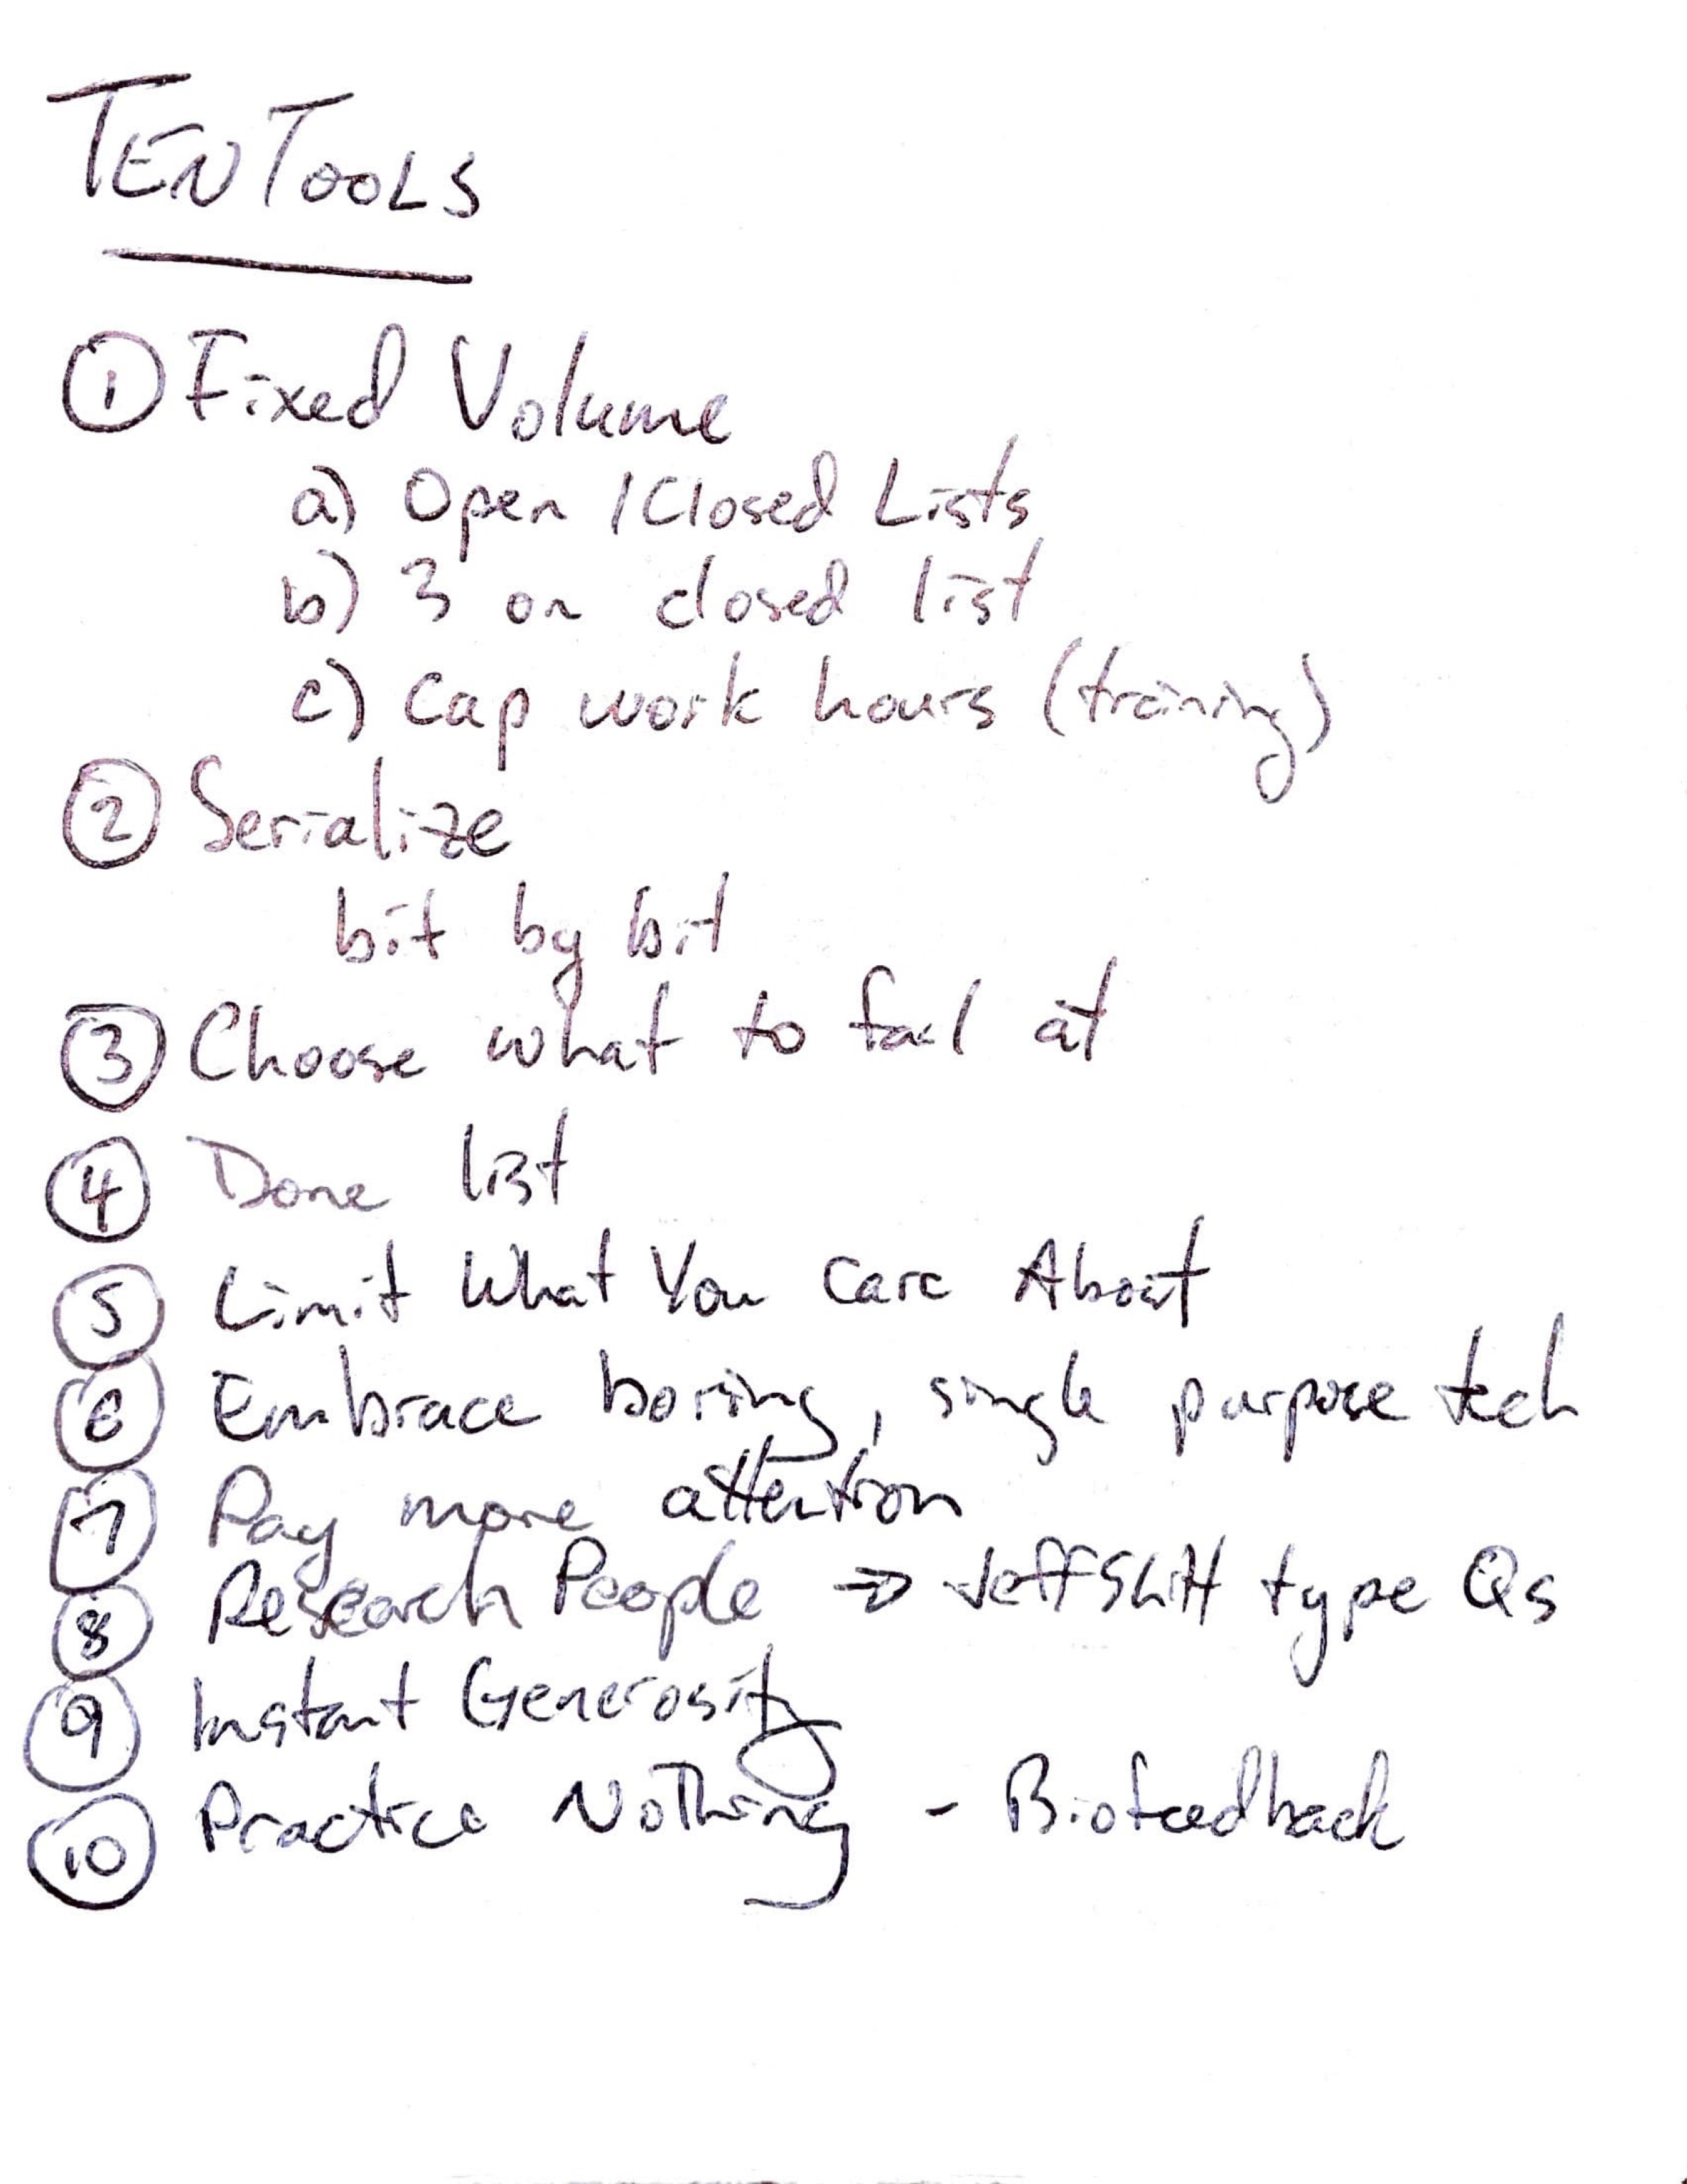 TEN TOOLS
1 Fixed Volume
a) Open / Closed Lists
b) 3 on closed list
c) Cap work hours (training)
2 Serialize
bit by bit
3 Choose what to fail at
4 Done list
5 Limit What You Care About
6 Embrace boring, single purpose tech
7 Pay more attention
8 Research People → type Qs
9 Instant Generosity
10 Practice Nothing - Biofeedback